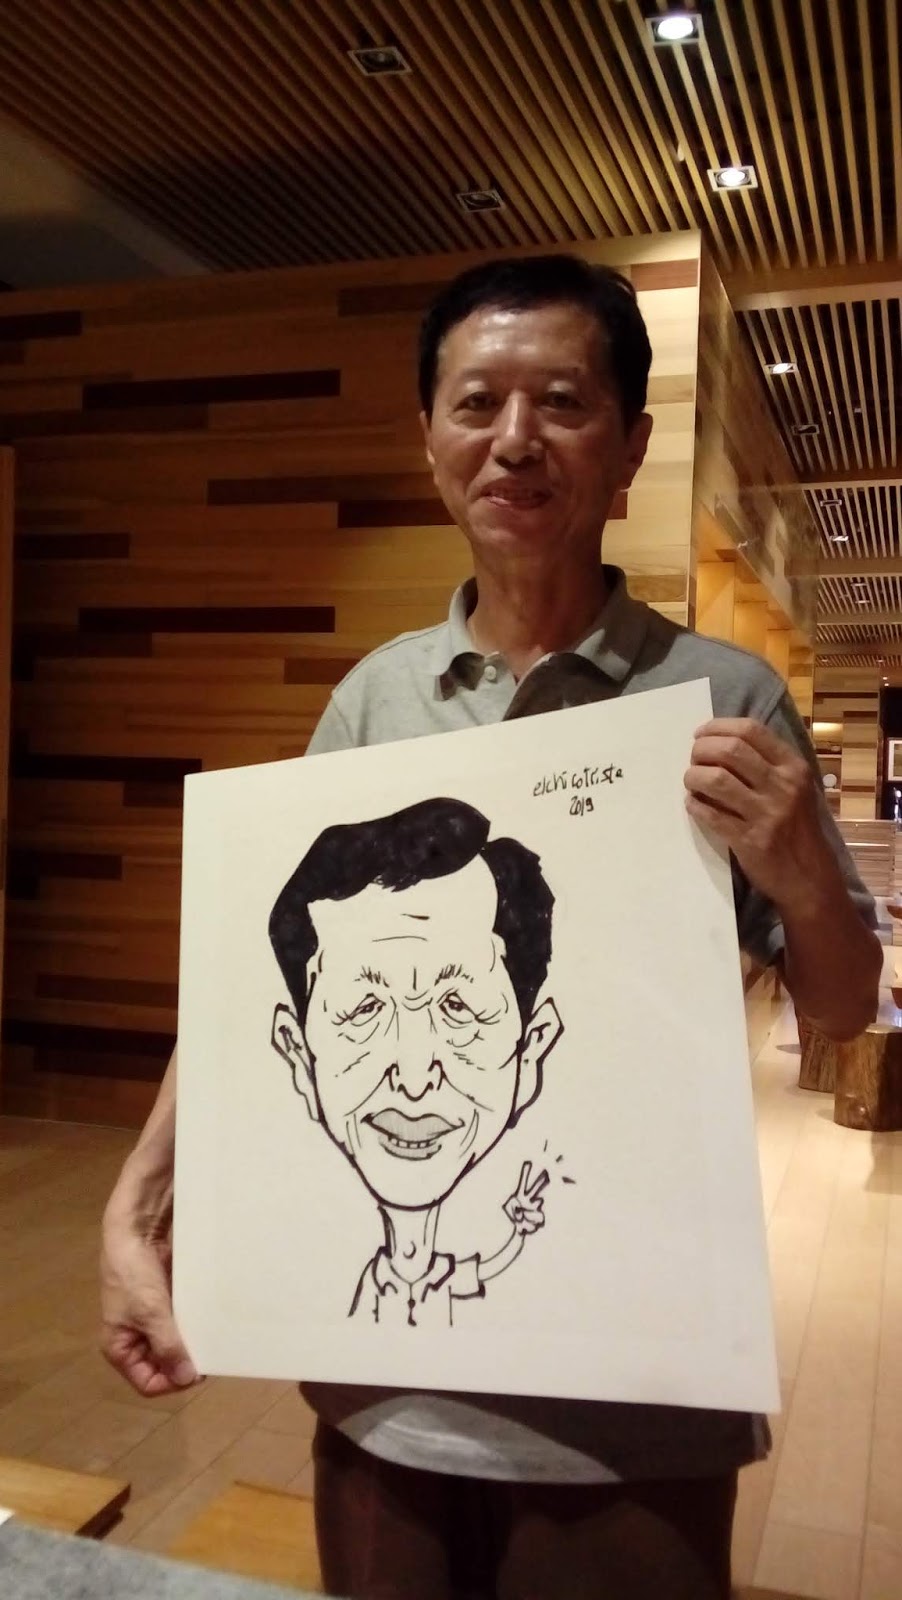 elchicotriste
2019